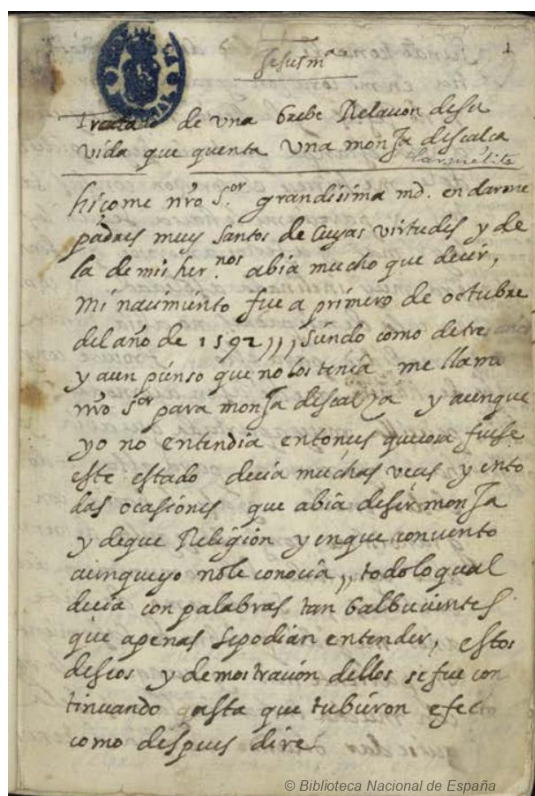 Jesus mª
1
Tratado de una brebe Relacion de su
vida que quenta una monja descalça
carmelita
hiçome nrõ s.or grandisima md. en darme
padres muy santos de cuyas virtudes y de
la de mis her.nos abia mucho que decir,
Mi nacimiento fue a primero de octubre
del año de 1592))) siendo como de tres años
y aun pienso que no los tenia me llamo
nrõ s.or para monja descalça y aunque
yo no entendia entonces que cosa fuese
este estado decia muchas veces y en to
das ocasiones que abia de ser monja
y de que Religion y en que convento
aunque yo no le conocia,, todo lo qual
decia con palabras tan balbucientes
que apenas se podian entender, estos
deseos y demostracion dellos se fue con
tinuando asta que tubieron efecto
como despues dire
© Biblioteca Nacional de España